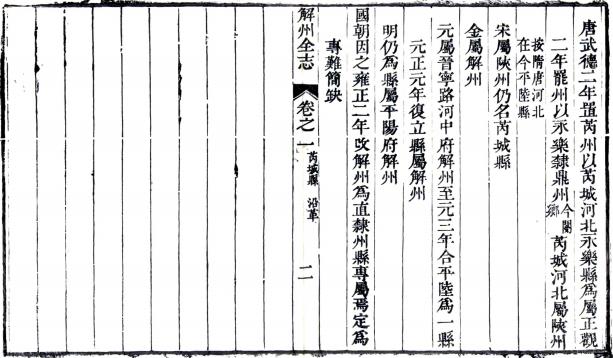 唐武德二年置芮州以芮城河北永樂縣爲屬正觀
二年罷州以永樂隸鼎州今閿鄉芮城河北屬陝州
按隋唐河北
在今平陸縣
宋屬陝州仍名芮城縣
金屬解州
元屬晉寧路河中府解州至元三年合平陸爲一縣
元正元年復立縣屬解州
明仍爲縣屬平陽府解州
國朝因之雍正二年改解州爲直隸州縣專屬焉定爲
專難簡缺
解州全志
卷之一
芮城縣 沿革
二